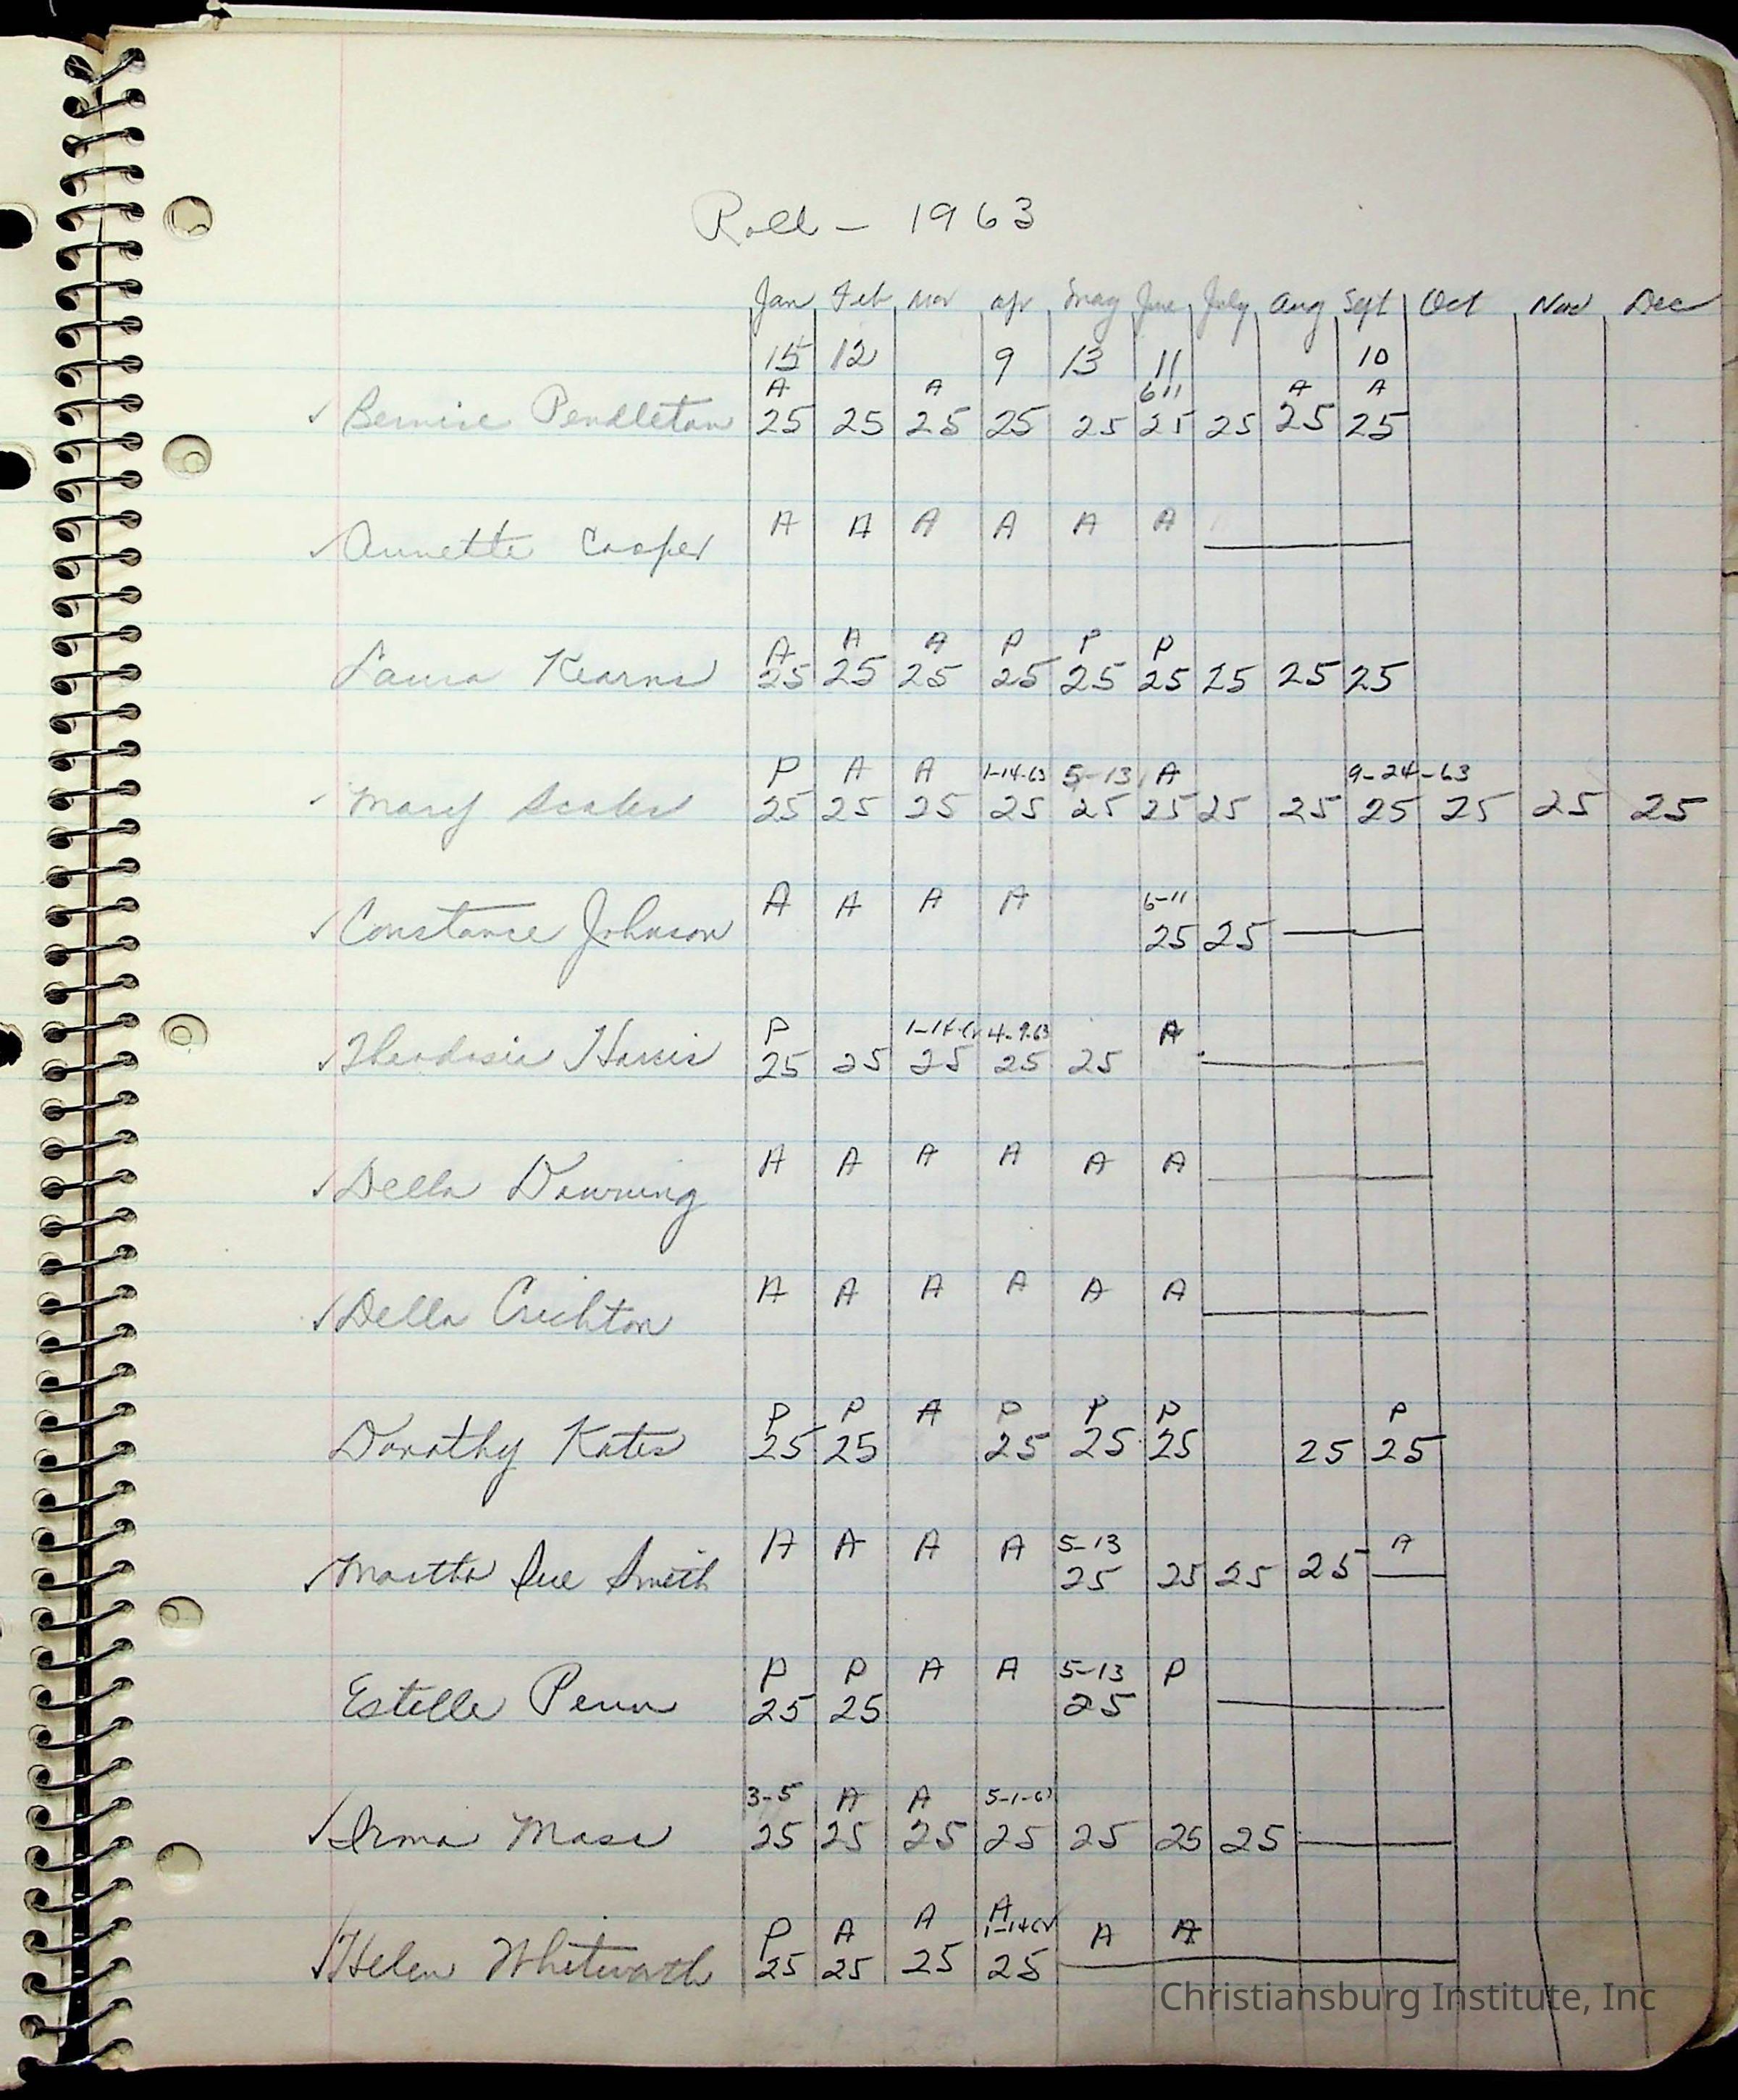 Roll - 1963
Jan Feb Mar Apr May June July Aug Sept Oct Nov Dec
15 12 9 13 11 10
A A 6 11 A A
Bernice Pendleton 25 25 25 25 25 25 25 25 25
A A A A A A
Annette Cooper
A A A P P P
Laura Kearns 25 25 25 25 25 25 25 25 25
P A A 1-14-63 5-13 A 9-24-63
Mary Scales 25 25 25 25 25 25 25 25 25 25 25 25
A A A A 6-11
Constance Johnson 25 25
P 4-9-63 A
Theodosia Harris 25 25 25 25 25
A A A A A A
Della Downing
A A A A A A
Della Crichton
P P A P P P P
Dorothy Kates 25 25 25 25 25 25 25
A A A A 5-13 A
Martha Sue Smith 25 25 25 25
P P A A 5-13 P
Estelle Penn 25 25 25
3-5 A A 5-1-63
Irma Mase 25 25 25 25 25 25 25
P A A A A A
Helen Whitworth 25 25 25 25
Christiansburg Institute, Inc